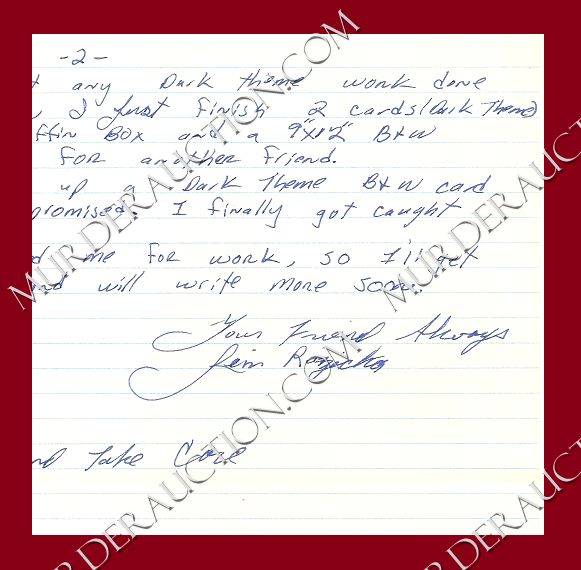 -2-
t any Dark theme work done
I just finish 2 cards (Dark Theme)
ffin Box and a 9"x12" B+W
for another friend.
up a Dark Theme B+W card
promised. I finally got caught
d me for work, so I'll get
and will write more soon.
Your Friend Always
Jim
nd Take Care
MURDERAUCTION.COM
MURDERAUCTION.COM
MURDERAUCTION.COM
MURDERAUCTION.COM